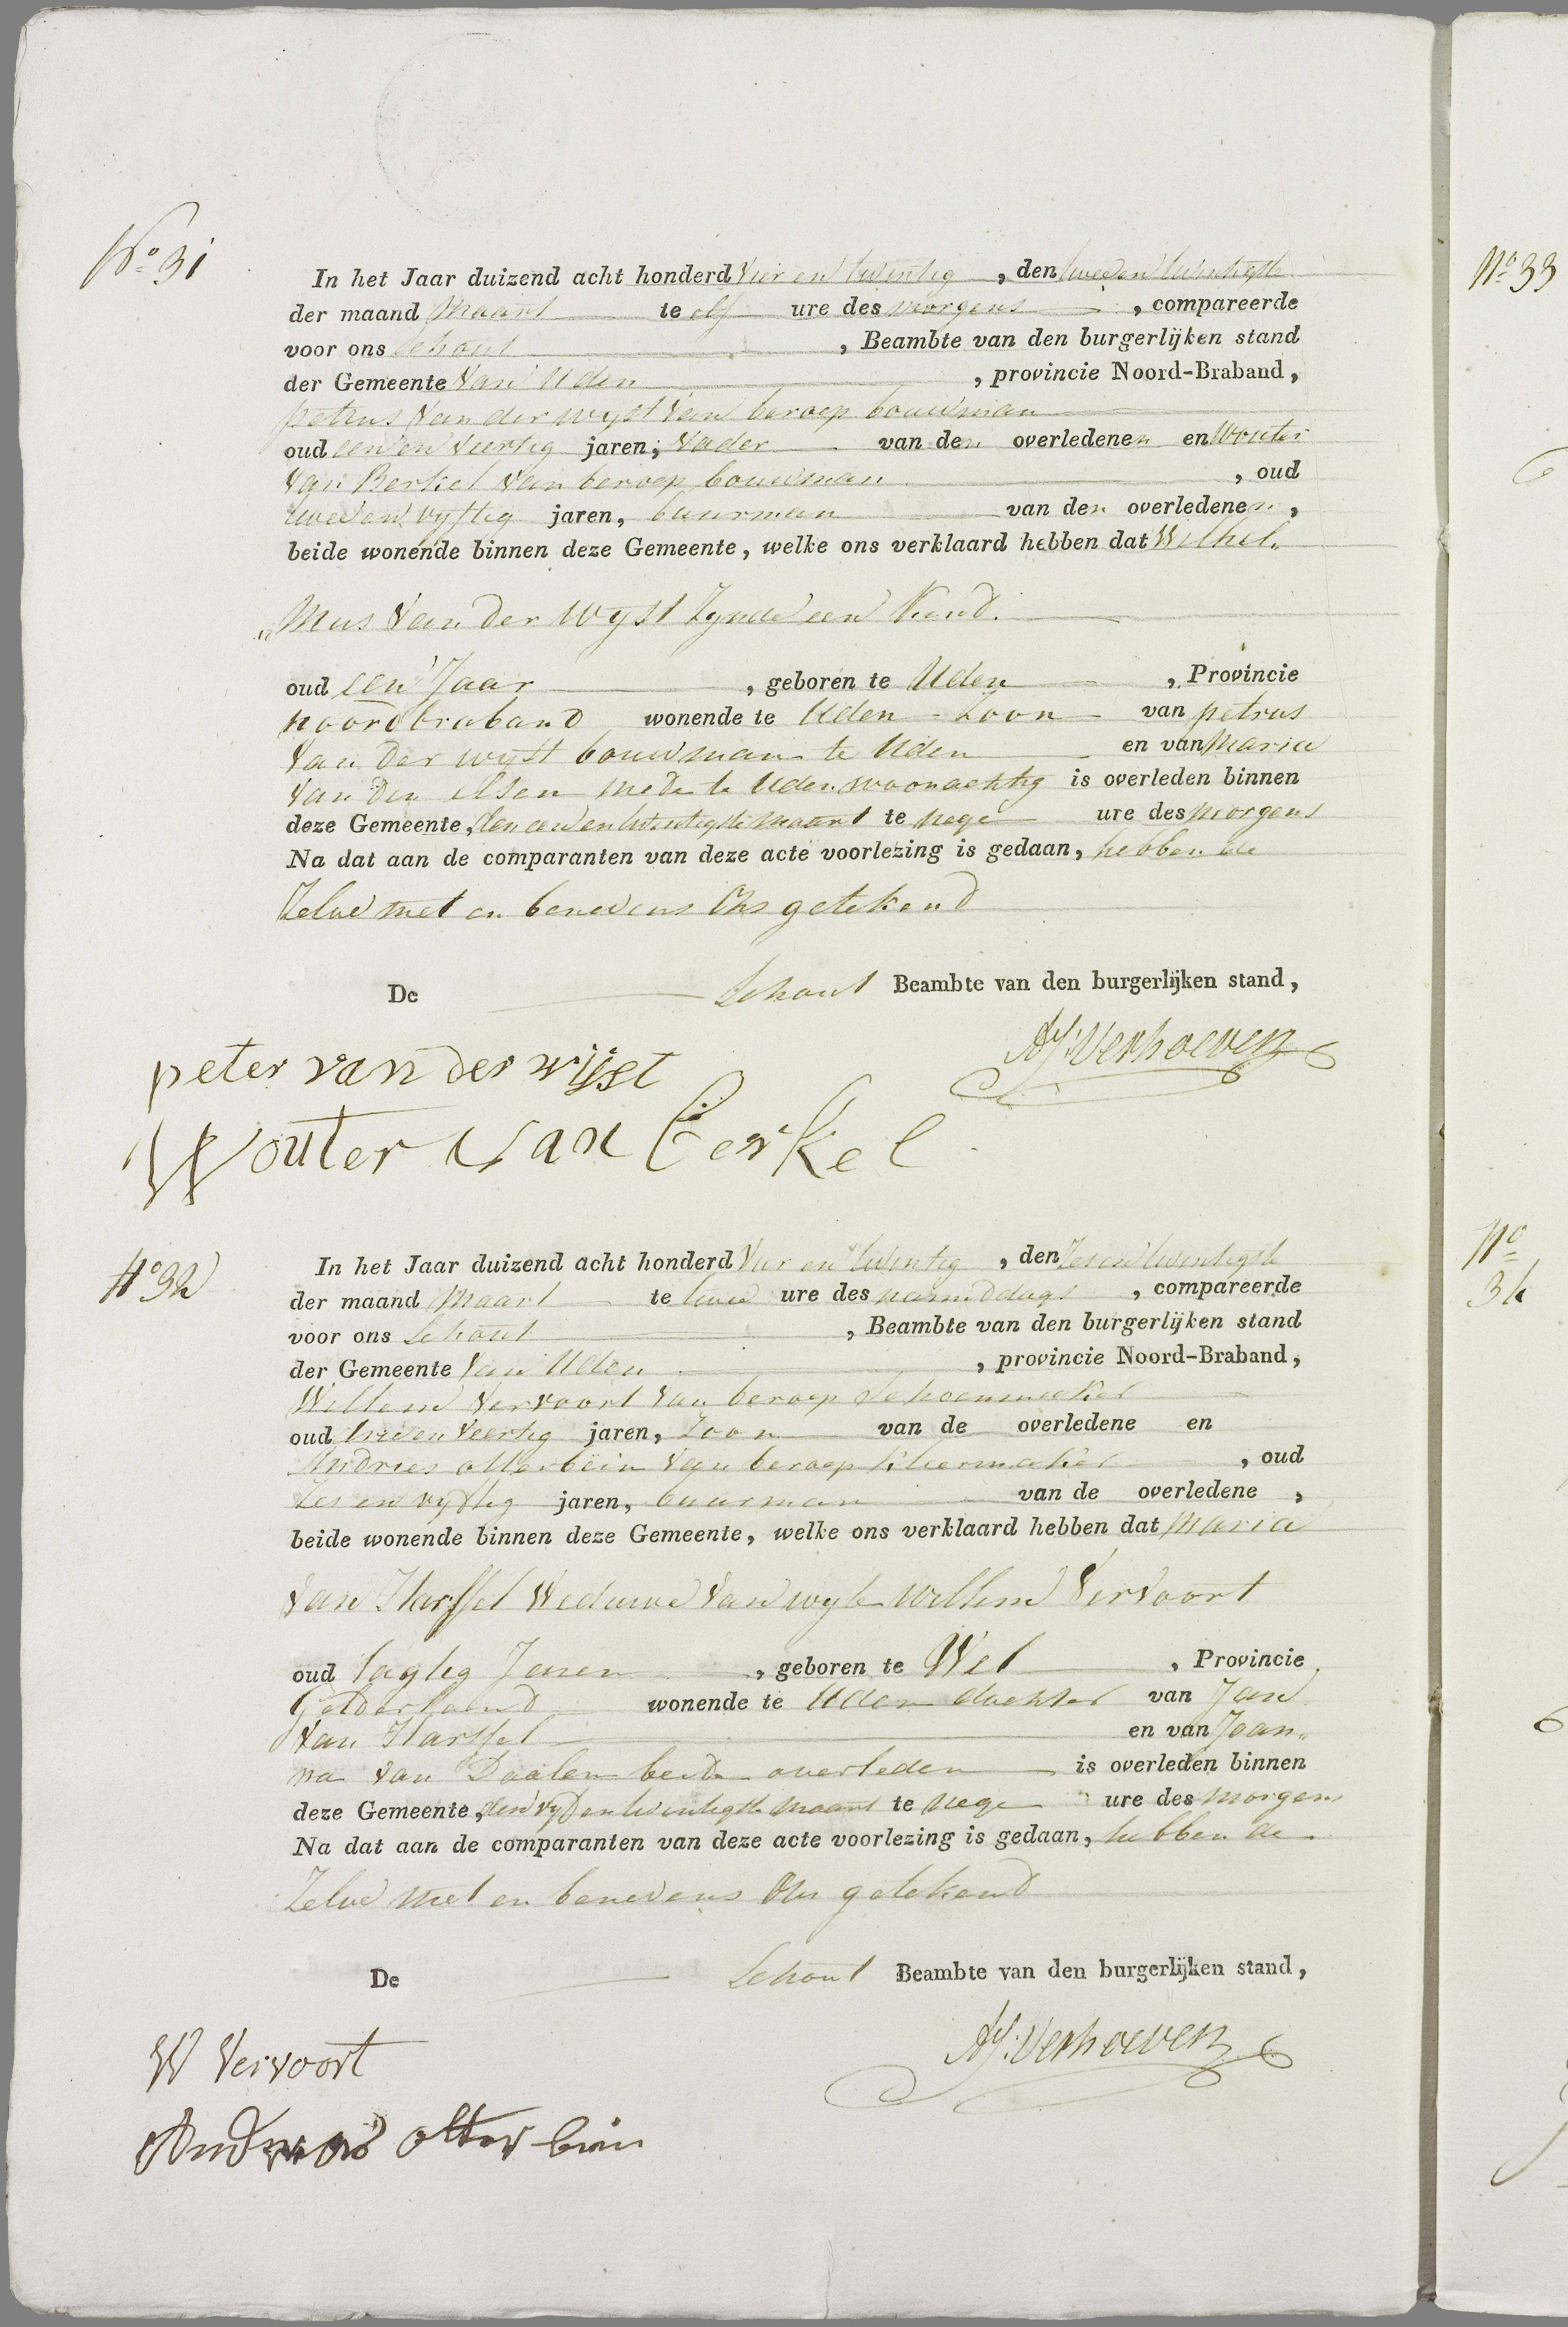 No. 31
In het Jaar duizend acht honderd Vier en twintig , den twee en twintigste
der maand Maart te elf ure des morgens , compareerde
voor ons Schout , Beambte van den burgerlijken stand
der Gemeente Van Uden , provincie Noord-Braband ,
petrus Van der wyst Van beroep bouwman
oud een en veertig jaren, Vader van den overledenen en Wouter
Van Berkel van beroep bouwman , oud
twee en vyftig jaren, buurman van den overledenen ,
beide wonende binnen deze Gemeente, welke ons verklaard hebben dat Wilhel„
„Mus Van Der Wyst Zynde een Kind.
oud een Jaar , geboren te Uden , Provincie
noordbraband wonende te Uden Zoon van petrus
Van Der wyst bouwman te Uden en van Maria
Van Den Elsen mede te Uden woonachtig is overleden binnen
deze Gemeente, den een en twintigste maart te nege ure des morgens
Na dat aan de comparanten van deze acte voorlezing is gedaan, hebben de
Zelve met en benevens Ons getekend
De Schout Beambte van den burgerlijken stand,
peter van der wijst
Wouter van Berkel
No 32
In het Jaar duizend acht honderd Vier en twintig , den Zes en twintigste
der maand Maart te twee ure des namiddags , compareerde
voor ons Schout , Beambte van den burgerlijken stand
der Gemeente Van Uden , provincie Noord-Braband ,
Willem Vervoort Van beroep Schoenmaker
oud drie en Veertig jaren, Zoon van de overledene en
Andries otterbein Van beroep kleermaker , oud
Zes en vyftig jaren, buurman van de overledene ,
beide wonende binnen deze Gemeente, welke ons verklaard hebben dat Maria
Van Harssel Weduwe Van wyle Willem Vervoort
oud tagtig Jaren , geboren te Wel , Provincie
Gelderland wonende te Uden dochter van Jan
Van Harssel en van Joan„
na van Daalen beide overleden is overleden binnen
deze Gemeente, den vyf en twintigste maart te nege ure des morgens
Na dat aan de comparanten van deze acte voorlezing is gedaan, hebben de
Zelve met en benevens Ons getekend
De Schout Beambte van den burgerlijken stand,
Verhoeven
W Vervoort
Andries otterbein
No. 33
No
34